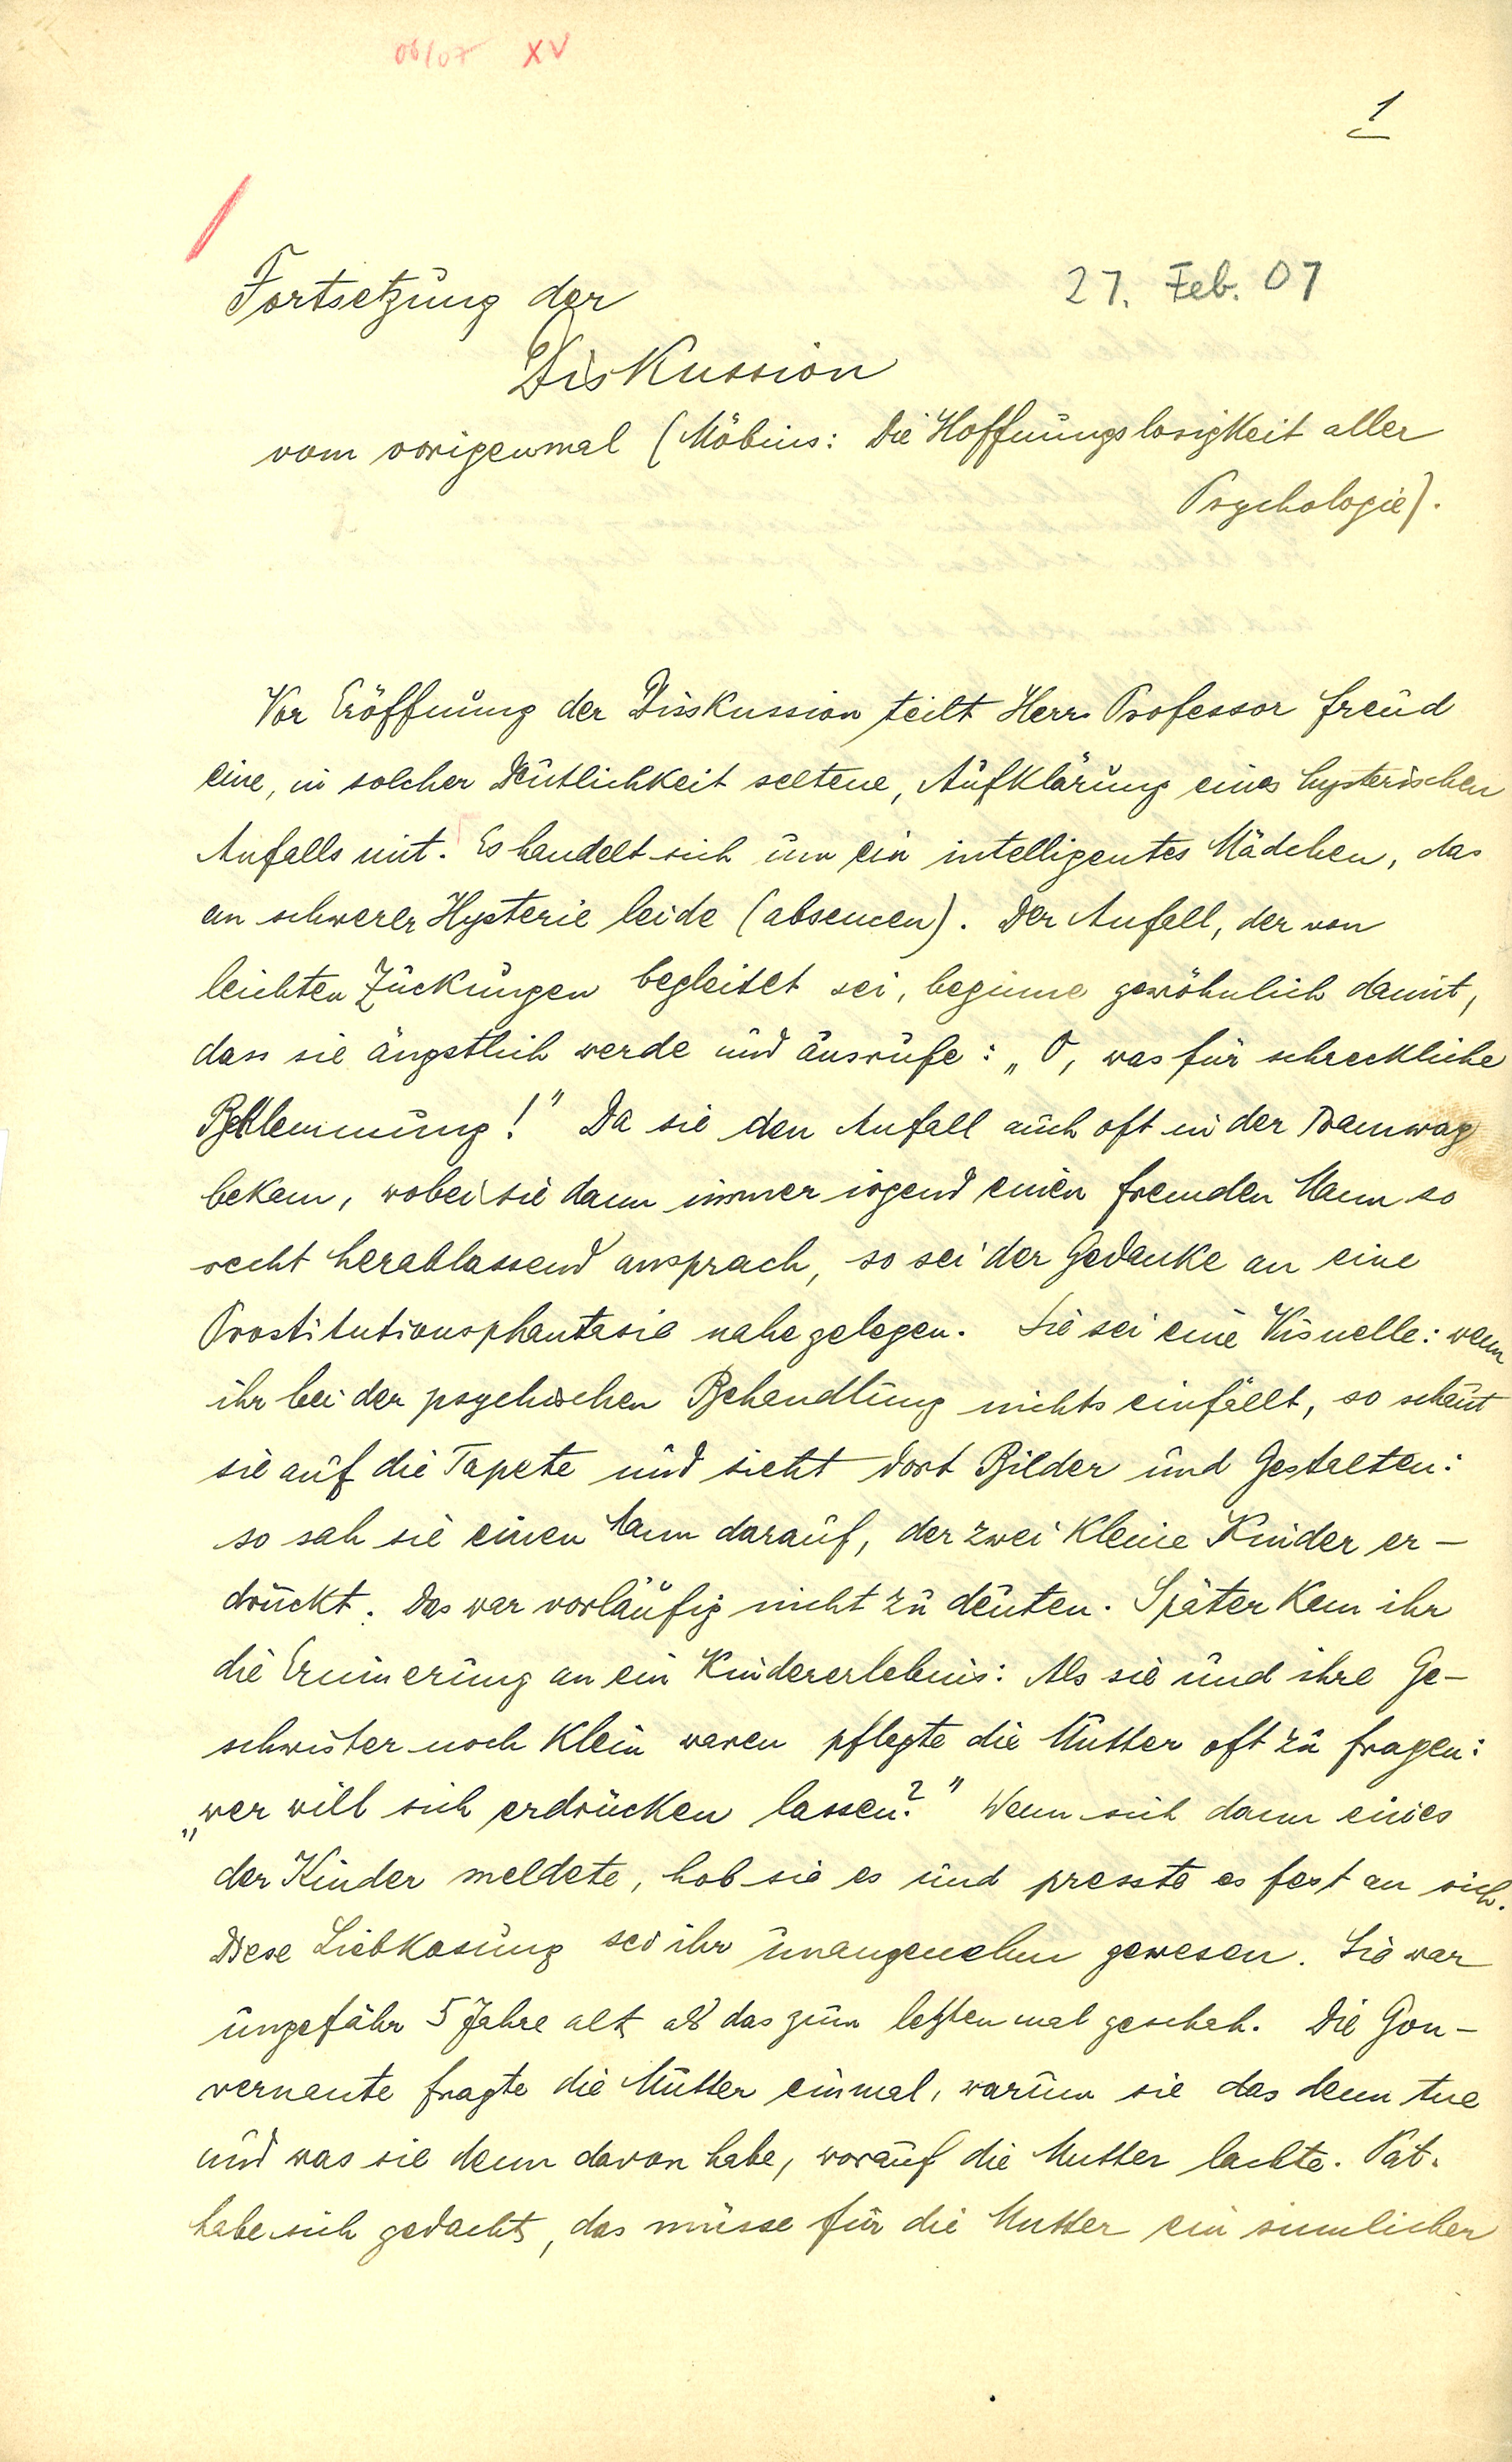 06/07 XV
1
Fortsetzung der
27. Feb. 07
Diskussion
vom vorigenmal (Möbius: Die Hoffnungslosigkeit aller
Psychologie).
Vor Eröffnung der Disskussion teilt Herr Professor Freud
eine, in solcher Deutlichkeit seltene, Aufklärung eines hysterischen
Anfalls mit. Es handelt sich um ein intelligentes Mädchen, das
an schwerer Hysterie leide (absencen). Der Anfall, der von
leichten Zuckungen begleitet sei, beginne gewöhnlich damit,
dass sie ängstlich werde und ausrufe: „O, was für schreckliche
Beklemmung!" Da sie den Anfall auch oft in der Tramway
bekam, wobei sie dann immer irgend einen fremden Mann so
recht herablassend ansprach, so sei der Gedanke an eine
Prostitutionsphantasie nahe gelegen. Sie sei eine Visuelle: wenn
ihr bei der psychischen Behandlung nichts einfällt, so schaut
sie auf die Tapete und sieht dort Bilder und Gestalten:
so sah sie einen Mann darauf, der zwei kleine Kinder er-
drückt. Das war vorläufig nicht zu deuten. Später kam ihr
die Erinnerung an ein Kindererlebnis: Als sie und ihre Ge-
schwister noch klein waren pflegte die Mutter oft zu fragen:
„wer will sich erdrücken lassen?" Wenn sich dann eines
der Kinder meldete, hob sie es und presste es fest an sich.
Diese Liebkosung sei ihr unangenehm gewesen. Sie war
ungefähr 5 Jahre alt, als das zum letzten mal geschah. Die Gou-
vernante fragte die Mutter einmal, warum sie das denn tue
und was sie denn davon habe, worauf die Mutter lachte. Pat.
habe sich gedacht, das müsse für die Mutter ein sinnlicher